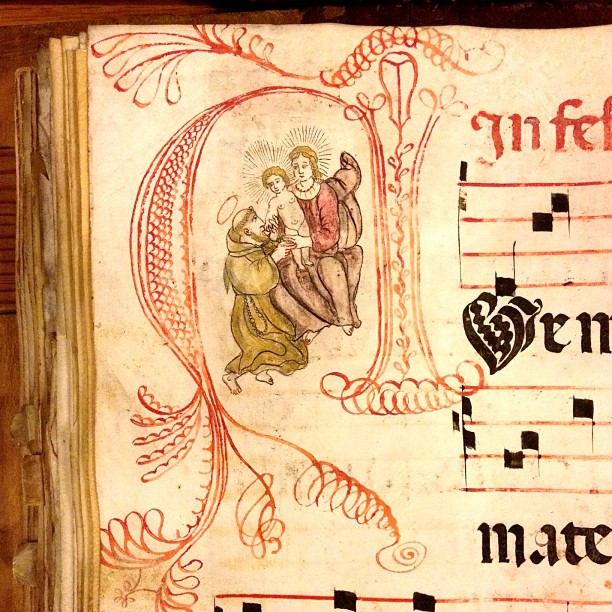 In fes
Ve m
mate